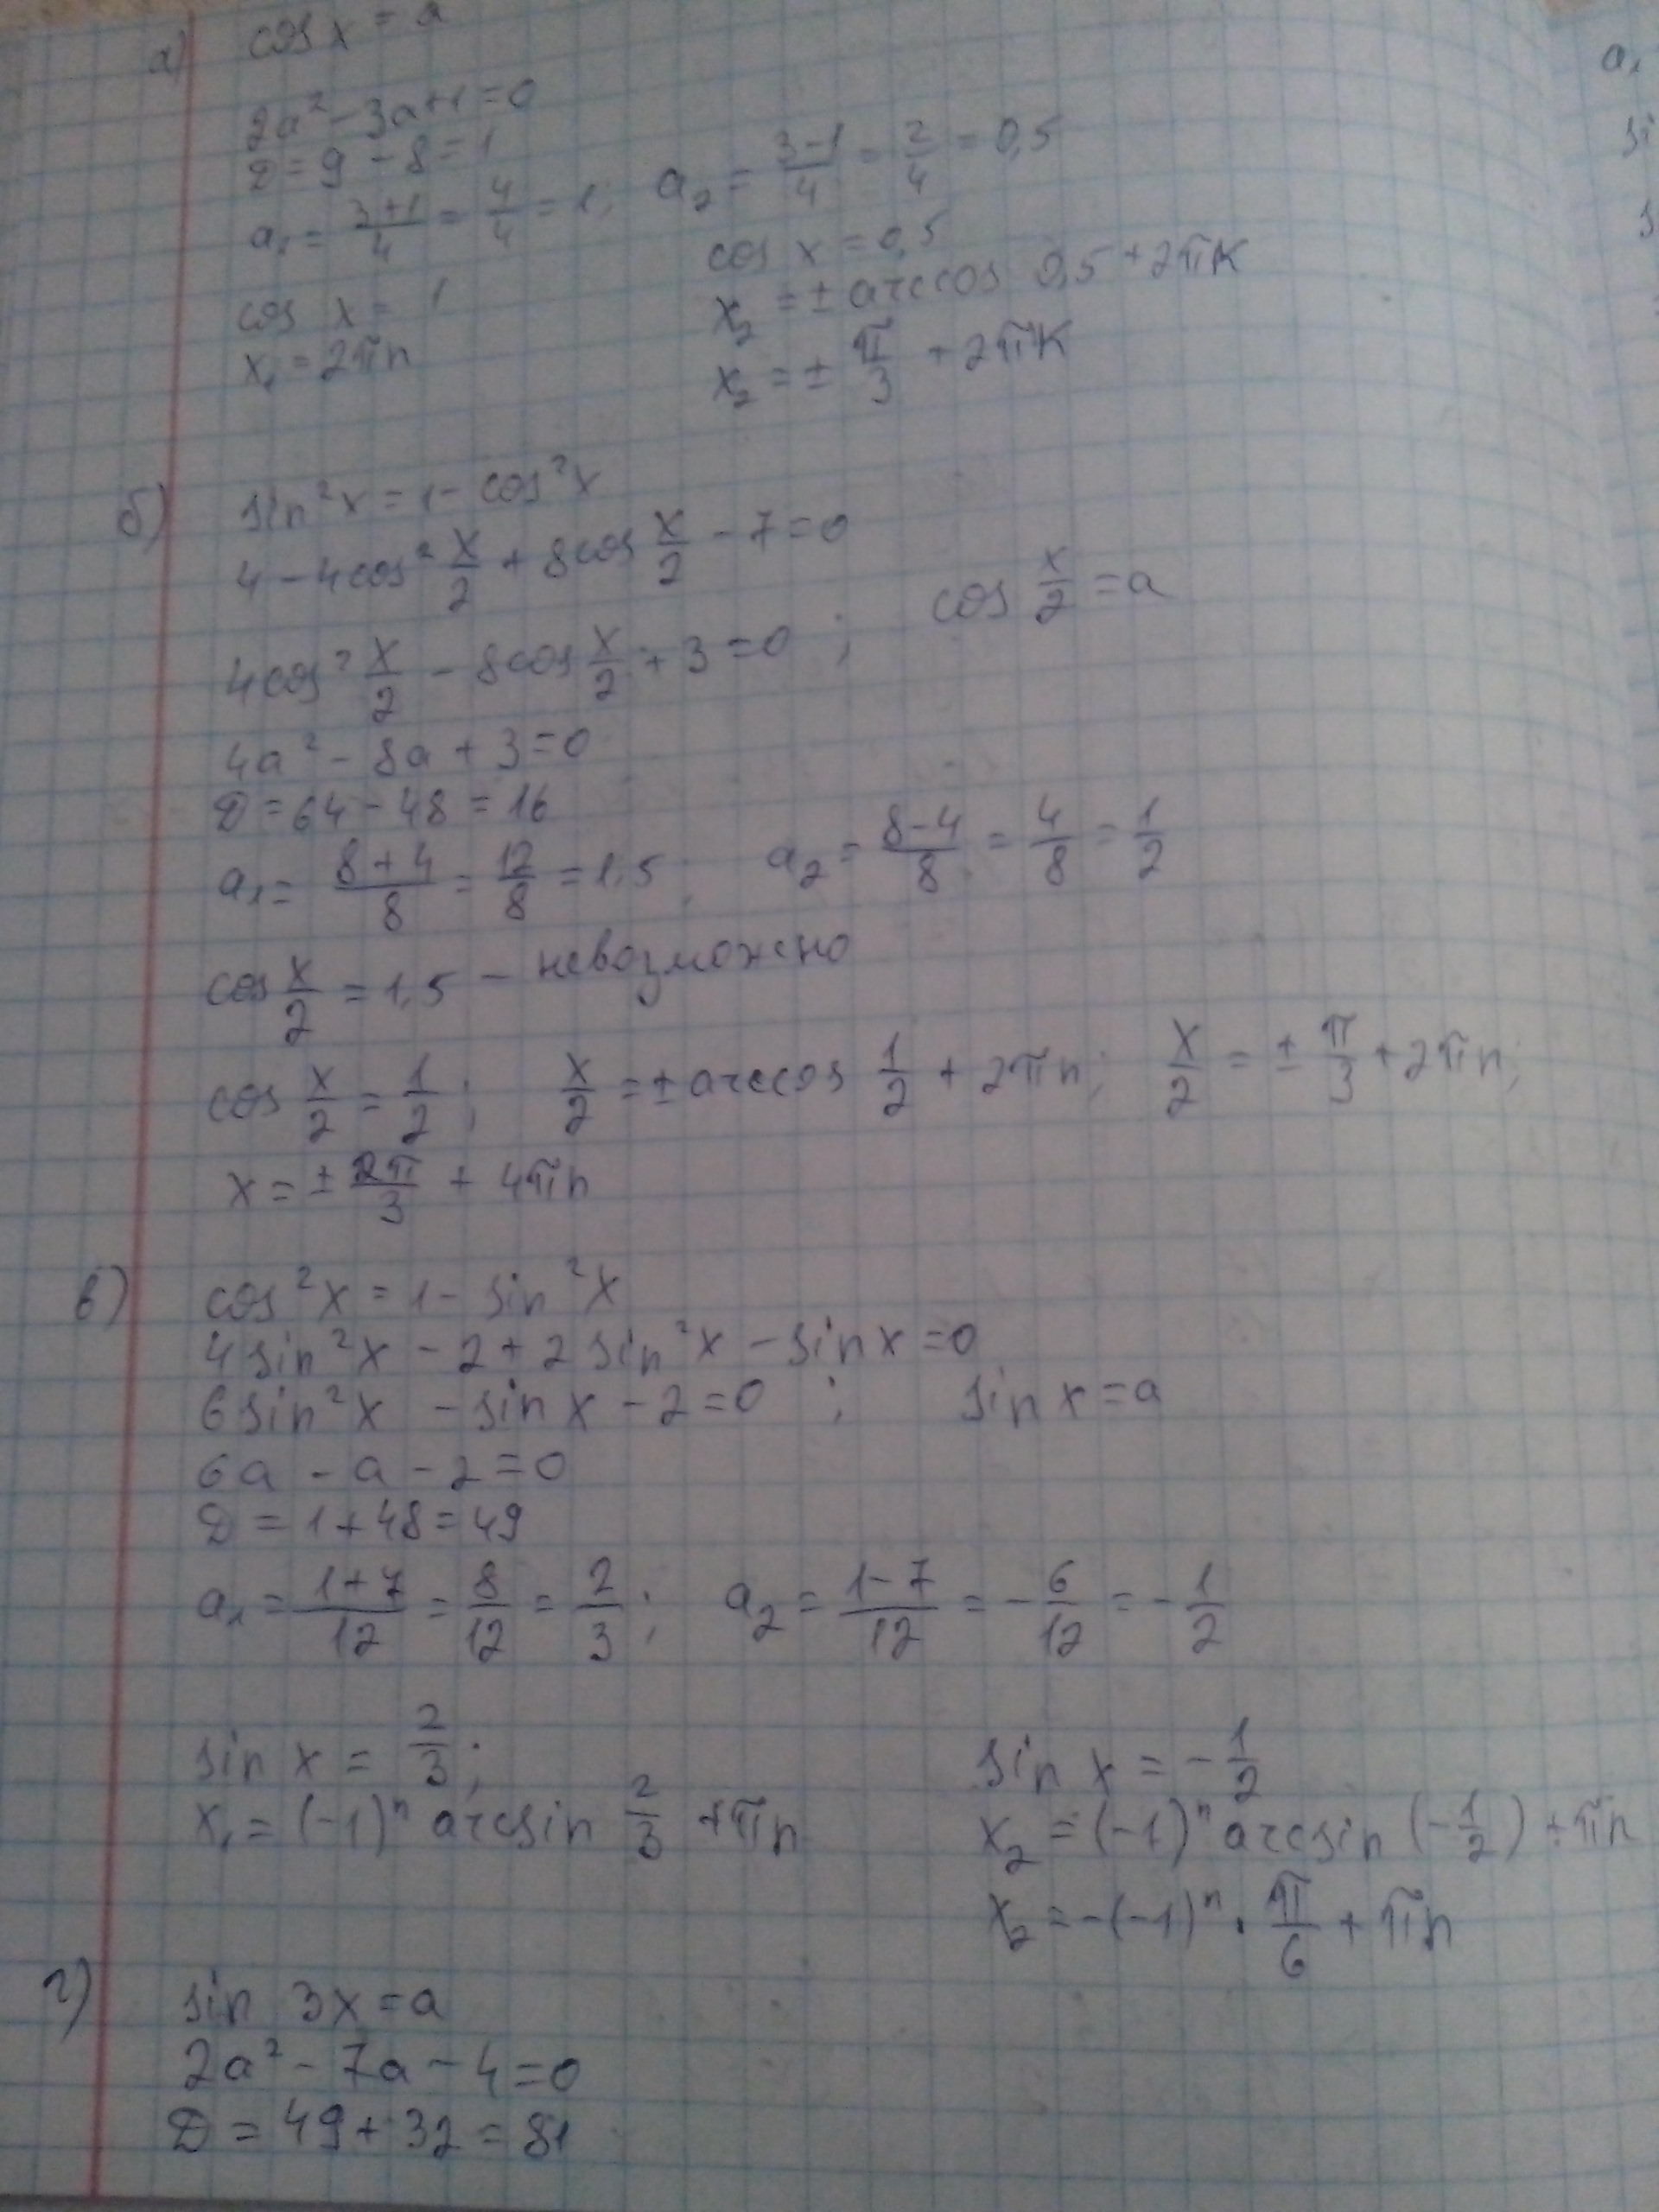 а) cos x = a
2a² - 3a + 1 = 0
D = 9 - 8 = 1
a₁ = (3+1)/4 = 4/4 = 1; a₂ = (3-1)/4 = 2/4 = 0,5
cos x = 1
x₁ = 2πn
cos x = 0,5
x₂ = ± arccos 0,5 + 2πk
x₂ = ± π/3 + 2πk
б) sin²x = 1 - cos²x
4 - 4cos² x/2 + 8cos x/2 - 7 = 0
4cos² x/2 - 8cos x/2 + 3 = 0; cos x/2 = a
4a² - 8a + 3 = 0
D = 64 - 48 = 16
a₁ = (8+4)/8 = 12/8 = 1,5; a₂ = (8-4)/8 = 4/8 = 1/2
cos x/2 = 1,5 - невозможно
cos x/2 = 1/2; x/2 = ± arccos 1/2 + 2πn; x/2 = ± π/3 + 2πn;
x = ± 2π/3 + 4πn
в) cos²x = 1 - sin²x
4sin²x - 2 + 2sin²x - sin x = 0
6sin²x - sin x - 2 = 0; sin x = a
6a - a - 2 = 0
D = 1 + 48 = 49
a₁ = (1+7)/12 = 8/12 = 2/3; a₂ = (1-7)/12 = -6/12 = -1/2
sin x = 2/3;
x₁ = (-1)ⁿ arcsin 2/3 + πn
sin x = -1/2
x₂ = (-1)ⁿ arcsin (-1/2) + πn
x₂ = -(-1)ⁿ · π/6 + πn
г) sin 3x = a
2a² - 7a - 4 = 0
D = 49 + 32 = 81